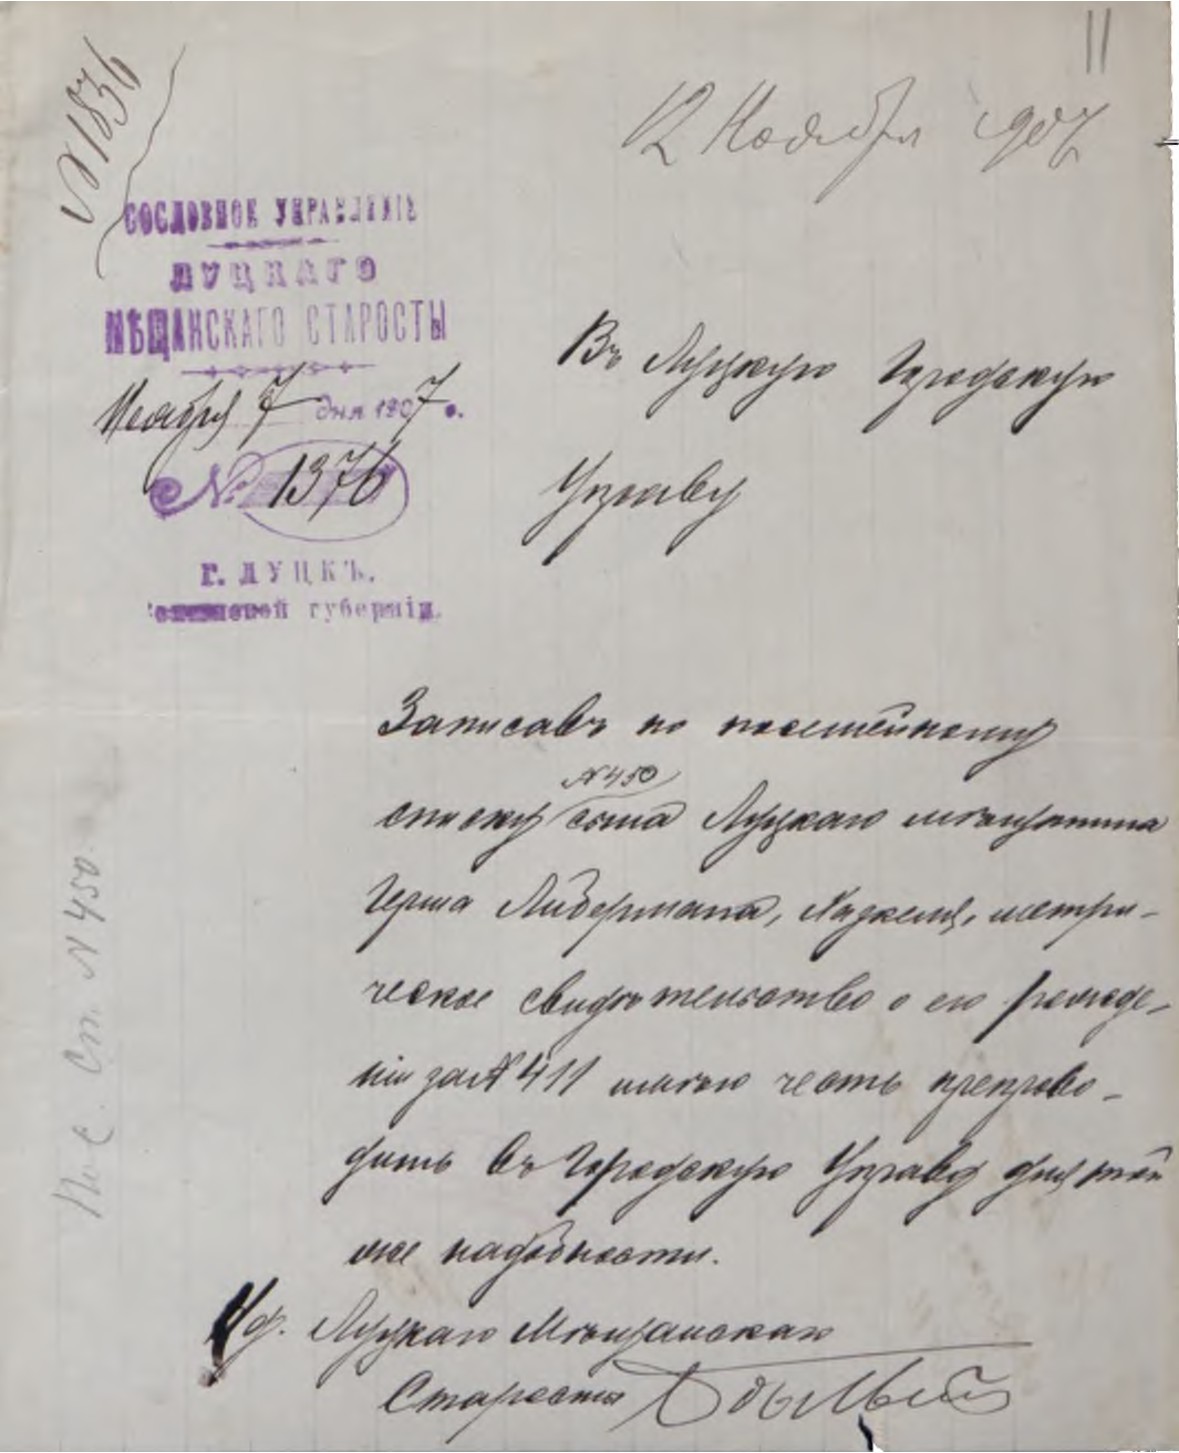 11
№ 1836
12 Ноября 1907
СОСЛОВНОЕ УПРАВЛЕНІЕ
ЛУЦКАГО
МѢЩАНСКАГО СТАРОСТЫ
Ноября 7 дня 1907 г.
№ 1376
г. ЛУЦКЪ.
губерніи.
Въ Луцкую Городскую
Управу
Записавъ по посемейному
№ 450
списку сына Луцкаго мѣщанина
Герша Либермана, Хаскеля, метри-
ческое свидѣтельство о его рожде-
ніи за № 411 имѣю честь препрово-
дить въ Городскую Управу для той
же надобности.
Луцкаго Мѣщанскаго
Старосты
Пос. Сп. № 450.